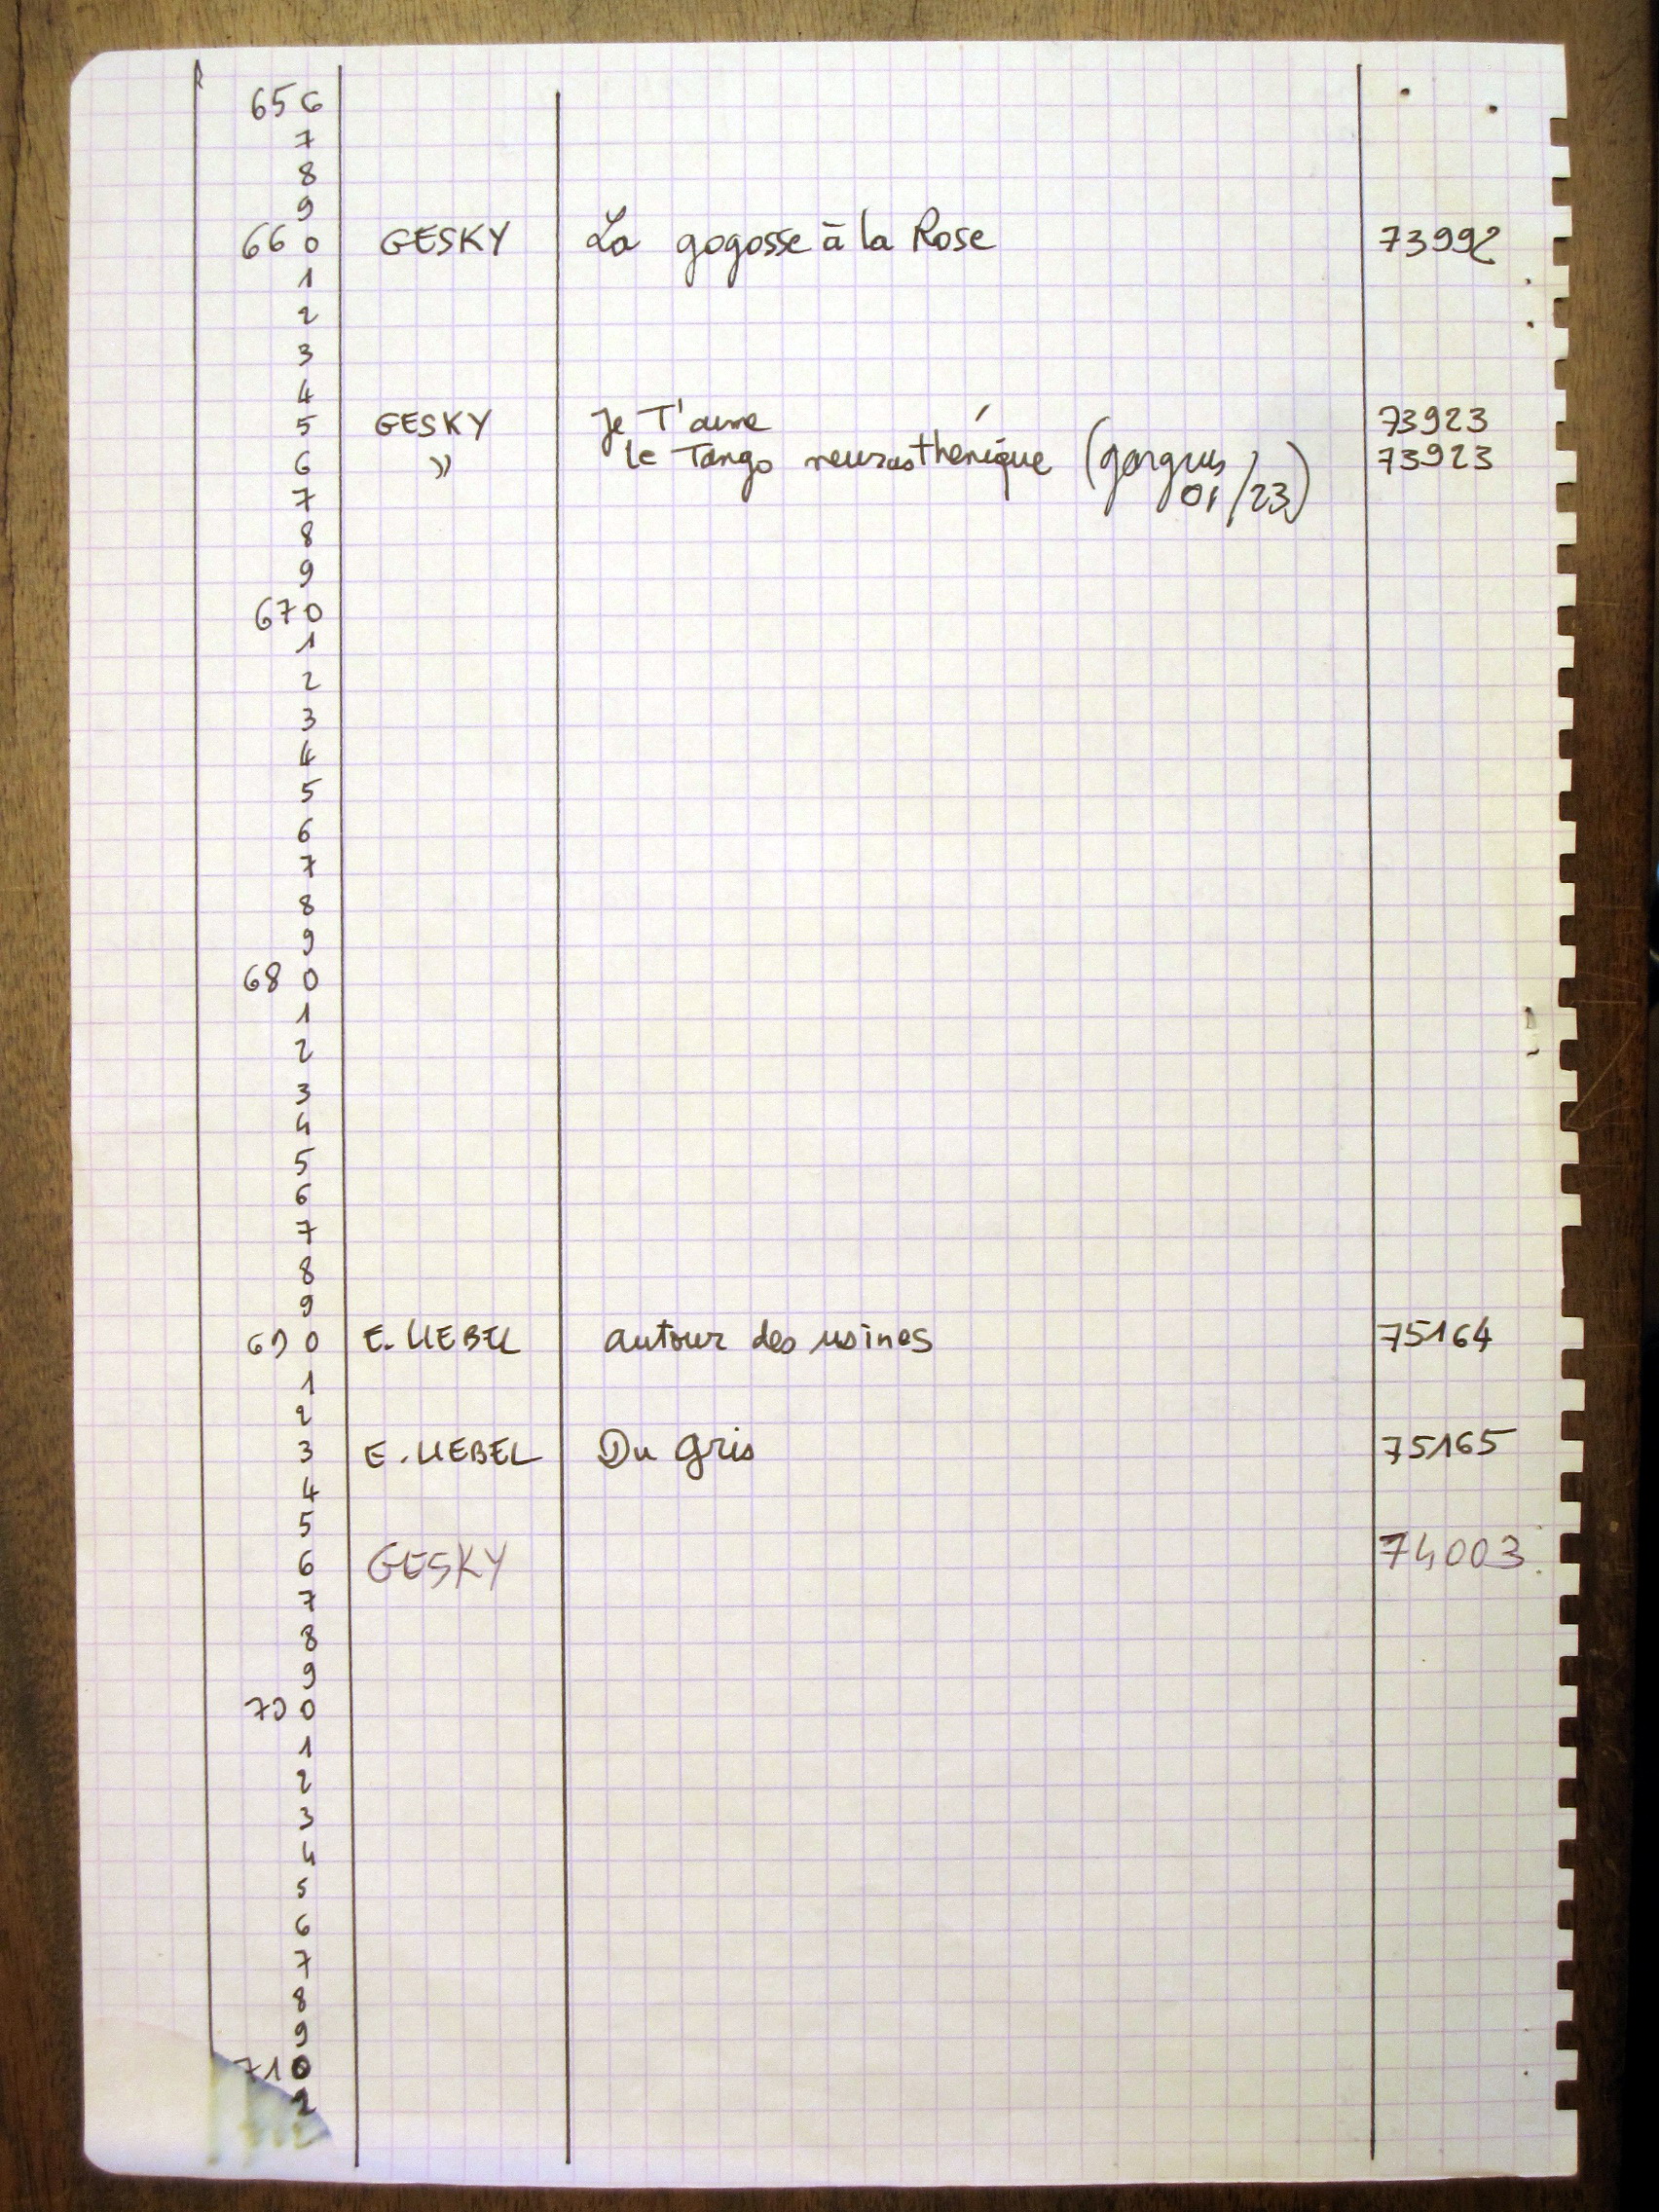 656
7
8
9
660 GESKY La gogosse à la Rose 73992
1
2
3
4
5 GESKY Je T'aime 73923
6 » le Tango neurasthenique (gargus 73923
7 01/23)
8
9
670
1
2
3
4
5
6
7
8
9
680
1
2
3
4
5
6
7
8
9
690 E. LIEBEL autour des usines 75164
1
2
3 E. LIEBEL Du Gris 75165
4
5
6 GESKY 74003
7
8
9
700
1
2
3
4
5
6
7
8
9
710
2